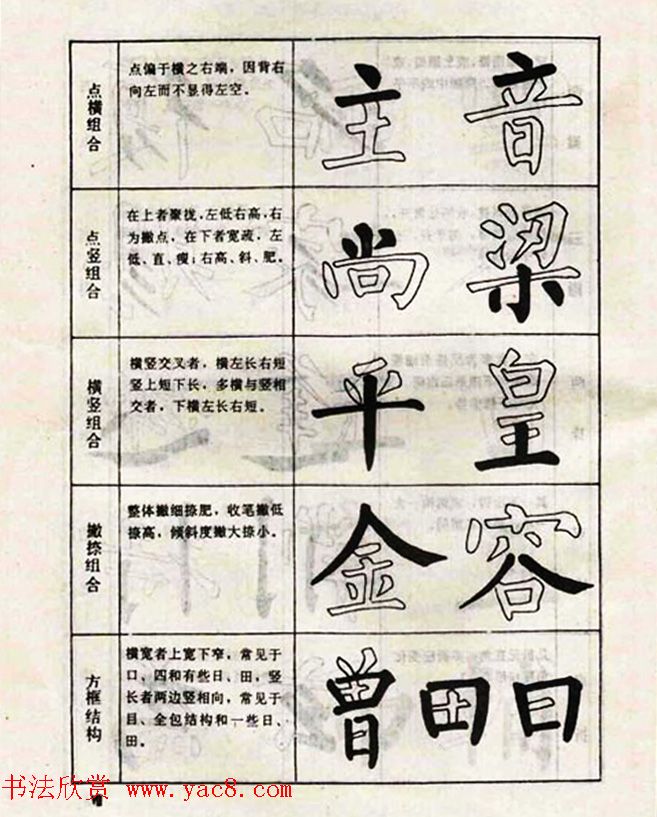 点横组合
点偏于横之右端，因背右
向左而不显得左空。
主 音
点竖组合
在上者聚拢，左低右高，右
为撇点，在下者宽疏，左
低、直、瘦；右高、斜、肥。
尚 梁
横竖组合
横竖交叉者，横左长右短
竖上短下长，多横与竖相
交者，下横左长右短。
平 皇
撇捺组合
整体撇细捺肥，收笔撇低
捺高，倾斜度撇大捺小。
金 容
方框结构
横宽者上宽下窄，常见于
口、四和有些日、田，竖
长者两边竖相向，常见于
目、全包结构和一些日、
田。
曾 田 日
书法欣赏 www.yac8.com